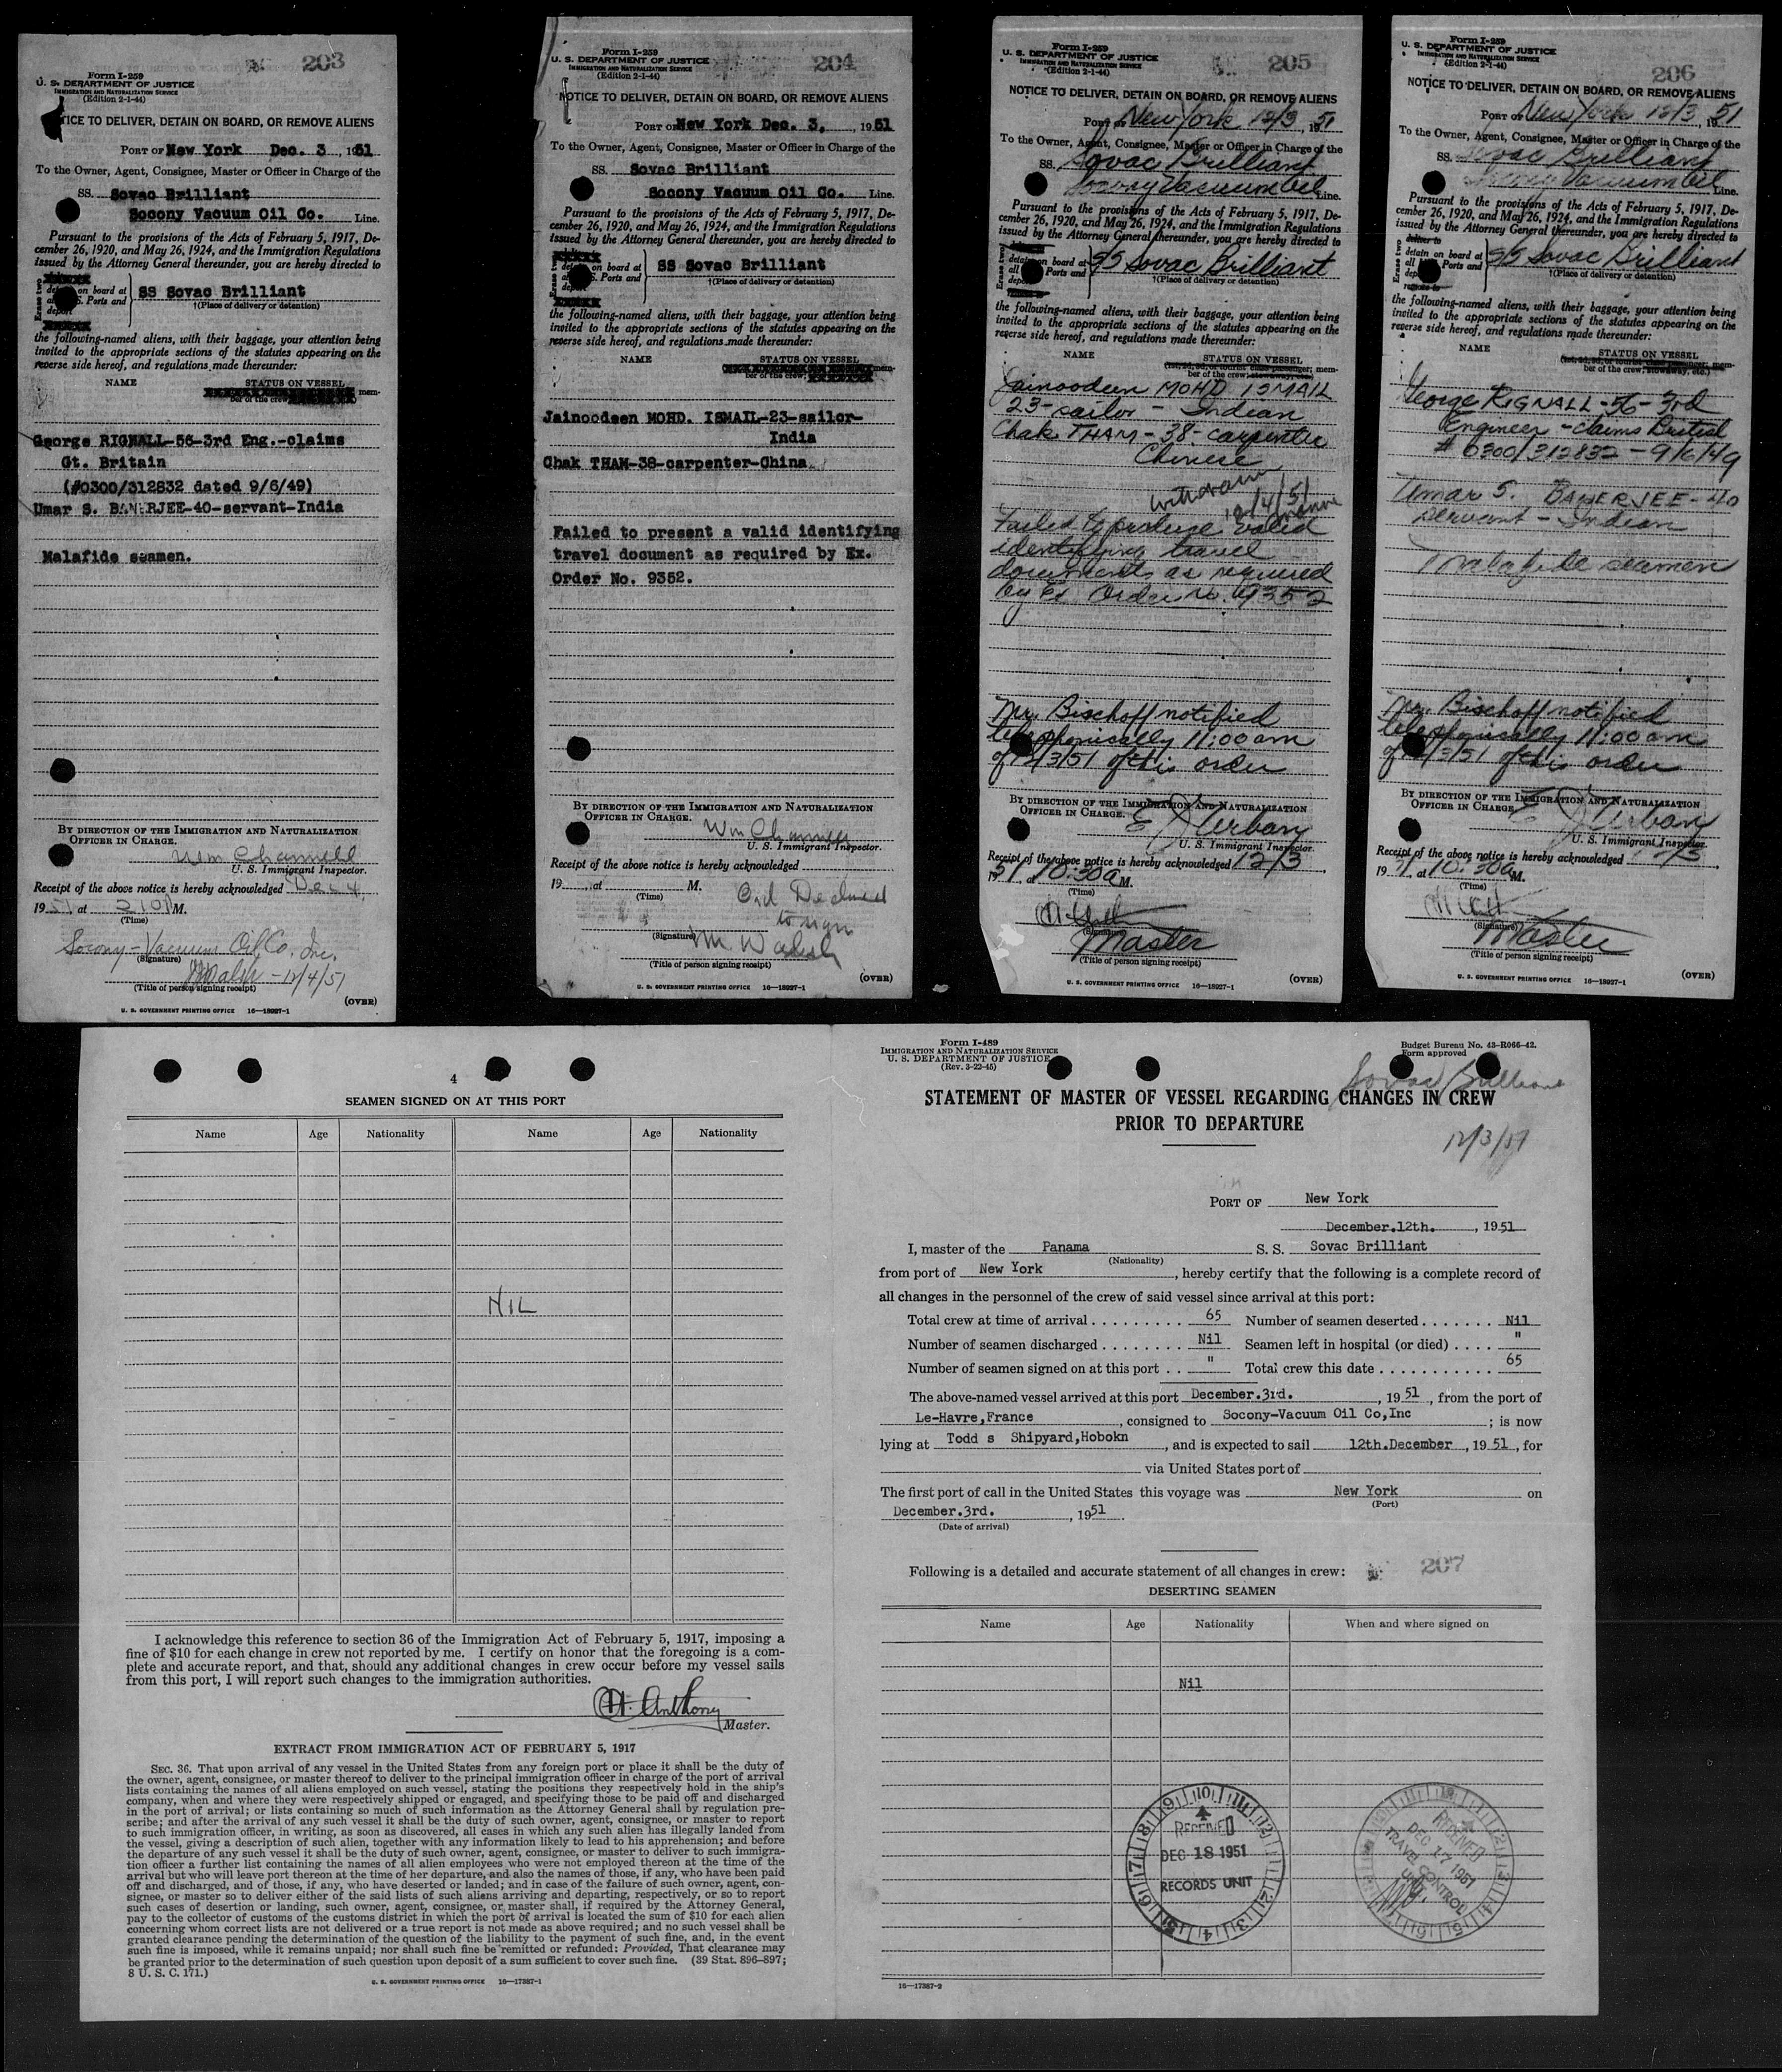 203
Form I-259
U. S. DEPARTMENT OF JUSTICE
IMMIGRATION AND NATURALIZATION SERVICE
(Edition 2-1-44)
TICE TO DELIVER, DETAIN ON BOARD, OR REMOVE ALIENS
PORT OF New York Dec. 3, 1951
To the Owner, Agent, Consignee, Master or Officer in Charge of the
SS. Sovac Brilliant
Socony Vacuum Oil Co. Line.
Pursuant to the provisions of the Acts of February 5, 1917, De-
cember 26, 1920, and May 26, 1924, and the Immigration Regulations
issued by the Attorney General thereunder, you are hereby directed to
detain on board at
all U. S. Ports and
deport
SS Sovac Brilliant
†(Place of delivery or detention)
the following-named aliens, with their baggage, your attention being
invited to the appropriate sections of the statutes appearing on the
reverse side hereof, and regulations made thereunder:
NAME STATUS ON VESSEL
mem-
ber of the crew
George RIGNALL-56-3rd Eng.-claims
Gt. Britain
(#0300/312832 dated 9/6/49)
Umar S. BANERJEE-40-servant-India
Malafide seamen.
BY DIRECTION OF THE IMMIGRATION AND NATURALIZATION
OFFICER IN CHARGE.
Wm Channell
U. S. Immigrant Inspector.
Receipt of the above notice is hereby acknowledged Dec 4,
1951, at 210 P M.
(Time)
Socony-Vacuum Oil Co. Inc.
(Signature)
M Walsh - 12/4/51
(Title of person signing receipt)
(OVER)
U. S. GOVERNMENT PRINTING OFFICE 16—18927-1
204
Form I-259
U. S. DEPARTMENT OF JUSTICE
IMMIGRATION AND NATURALIZATION SERVICE
(Edition 2-1-44)
NOTICE TO DELIVER, DETAIN ON BOARD, OR REMOVE ALIENS
PORT OF New York Dec. 3, , 1951
To the Owner, Agent, Consignee, Master or Officer in Charge of the
SS. Sovac Brilliant
Socony Vacuum Oil Co. Line.
Pursuant to the provisions of the Acts of February 5, 1917, De-
cember 26, 1920, and May 26, 1924, and the Immigration Regulations
issued by the Attorney General thereunder, you are hereby directed to
Erase two
detain on board at
all U. S. Ports and
SS Sovac Brilliant
†(Place of delivery or detention)
the following-named aliens, with their baggage, your attention being
invited to the appropriate sections of the statutes appearing on the
reverse side hereof, and regulations made thereunder:
NAME STATUS ON VESSEL
mem-
ber of the crew
Jainoodeen MOHD. ISMAIL-23-sailor-
India
Chak THAM-38-carpenter-China
Failed to present a valid identifying
travel document as required by Ex.
Order No. 9352.
BY DIRECTION OF THE IMMIGRATION AND NATURALIZATION
OFFICER IN CHARGE.
Wm Channell
U. S. Immigrant Inspector.
Receipt of the above notice is hereby acknowledged
19 , at M.
(Time)
Declined
to sign
(Signature)
M. Walsh
(Title of person signing receipt)
(OVER)
U. S. GOVERNMENT PRINTING OFFICE 16—18927-1
205
Form I-259
U. S. DEPARTMENT OF JUSTICE
IMMIGRATION AND NATURALIZATION SERVICE
(Edition 2-1-44)
NOTICE TO DELIVER, DETAIN ON BOARD, OR REMOVE ALIENS
PORT OF New York 12/3, 1951
To the Owner, Agent, Consignee, Master or Officer in Charge of the
SS. Sovac Brilliant
Socony Vacuum Oil Line.
Pursuant to the provisions of the Acts of February 5, 1917, De-
cember 26, 1920, and May 26, 1924, and the Immigration Regulations
issued by the Attorney General thereunder, you are hereby directed to
Erase two
detain on board at
all U. S. Ports and
S/S Sovac Brilliant
†(Place of delivery or detention)
the following-named aliens, with their baggage, your attention being
invited to the appropriate sections of the statutes appearing on the
reverse side hereof, and regulations made thereunder:
NAME STATUS ON VESSEL
(1st, 2d, 3d, or tourist class passenger; mem-
ber of the crew; stowaway, etc.)
Jainoodeen MOHD ISMAIL
23-sailor - Indian
Chak THAM-38-carpenter
Chinese
withdrawn
12/4/51
Failed to produce valid
identifying travel
documents as required
by Ex Order No. 9352
Mr. Bischoff notified
telephonically 11:00 am
of 12/3/51 of this order
BY DIRECTION OF THE IMMIGRATION AND NATURALIZATION
OFFICER IN CHARGE.
E J Urbany
U. S. Immigrant Inspector.
Receipt of the above notice is hereby acknowledged 12/3
1951, at 10:30 a M.
(Time)
(Signature)
Master
(Title of person signing receipt)
(OVER)
U. S. GOVERNMENT PRINTING OFFICE 16—18927-1
206
Form I-259
U. S. DEPARTMENT OF JUSTICE
IMMIGRATION AND NATURALIZATION SERVICE
(Edition 2-1-44)
NOTICE TO DELIVER, DETAIN ON BOARD, OR REMOVE ALIENS
PORT OF New York 12/3, 1951
To the Owner, Agent, Consignee, Master or Officer in Charge of the
SS. Sovac Brilliant
Socony Vacuum Oil Line.
Pursuant to the provisions of the Acts of February 5, 1917, De-
cember 26, 1920, and May 26, 1924, and the Immigration Regulations
issued by the Attorney General thereunder, you are hereby directed to
Erase two
deliver to
detain on board at
all U. S. Ports and
S/S Sovac Brilliant
†(Place of delivery or detention)
the following-named aliens, with their baggage, your attention being
invited to the appropriate sections of the statutes appearing on the
reverse side hereof, and regulations made thereunder:
NAME STATUS ON VESSEL
(1st, 2d, 3d, or tourist class passenger; mem-
ber of the crew; stowaway, etc.)
George RIGNALL-56-3rd
Engineer - claims British
# 0300/312832 - 9/6/49
Umar S. BANERJEE-40
servant - Indian
Malafide seamen
Mr. Bischoff notified
telephonically 11:00 am
of 12/3/51 of this order
BY DIRECTION OF THE IMMIGRATION AND NATURALIZATION
OFFICER IN CHARGE.
E J Urbany
U. S. Immigrant Inspector.
Receipt of the above notice is hereby acknowledged 12/3
1951, at 10:30 a M.
(Time)
(Signature)
Master
(Title of person signing receipt)
(OVER)
U. S. GOVERNMENT PRINTING OFFICE 16—18927-1
4
SEAMEN SIGNED ON AT THIS PORT
Name Age Nationality Name Age Nationality
NIL
I acknowledge this reference to section 36 of the Immigration Act of February 5, 1917, imposing a
fine of $10 for each change in crew not reported by me. I certify on honor that the foregoing is a com-
plete and accurate report, and that, should any additional changes in crew occur before my vessel sails
from this port, I will report such changes to the immigration authorities.
H. Anthony
Master.
EXTRACT FROM IMMIGRATION ACT OF FEBRUARY 5, 1917
SEC. 36. That upon arrival of any vessel in the United States from any foreign port or place it shall be the duty of
the owner, agent, consignee, or master thereof to deliver to the principal immigration officer in charge of the port of arrival
lists containing the names of all aliens employed on such vessel, stating the positions they respectively hold in the ship's
company, when and where they were respectively shipped or engaged, and specifying those to be paid off and discharged
in the port of arrival; or lists containing so much of such information as the Attorney General shall by regulation pre-
scribe; and after the arrival of any such vessel it shall be the duty of such owner, agent, consignee, or master to report
to such immigration officer, in writing, as soon as discovered, all cases in which any such alien has illegally landed from
the vessel, giving a description of such alien, together with any information likely to lead to his apprehension; and before
the departure of any such vessel it shall be the duty of such owner, agent, consignee, or master to deliver to such immigra-
tion officer a further list containing the names of all alien employees who were not employed thereon at the time of the
arrival but who will leave port thereon at the time of her departure, and also the names of those, if any, who have been paid
off and discharged, and of those, if any, who have deserted or landed; and in case of the failure of such owner, agent, con-
signee, or master so to deliver either of the said lists of such aliens arriving and departing, respectively, or so to report
such cases of desertion or landing, such owner, agent, consignee, or master shall, if required by the Attorney General,
pay to the collector of customs of the customs district in which the port of arrival is located the sum of $10 for each alien
concerning whom correct lists are not delivered or a true report is not made as above required; and no such vessel shall be
granted clearance pending the determination of the question of the liability to the payment of such fine, and, in the event
such fine is imposed, while it remains unpaid; nor shall such fine be remitted or refunded: Provided, That clearance may
be granted prior to the determination of such question upon deposit of a sum sufficient to cover such fine. (39 Stat. 896–897;
8 U. S. C. 171.)
U. S. GOVERNMENT PRINTING OFFICE 16—17387-1
Form I-489
IMMIGRATION AND NATURALIZATION SERVICE
U. S. DEPARTMENT OF JUSTICE
(Rev. 3-22-45)
Budget Bureau No. 43-R066-42.
Form approved
Sovac Brilliant
STATEMENT OF MASTER OF VESSEL REGARDING CHANGES IN CREW
PRIOR TO DEPARTURE
12/3/51
PORT OF New York
December.12th. , 1951
I, master of the Panama S. S. Sovac Brilliant
(Nationality)
from port of New York , hereby certify that the following is a complete record of
all changes in the personnel of the crew of said vessel since arrival at this port:
Total crew at time of arrival . . . . . . . . . 65 Number of seamen deserted . . . . . . . Nil
Number of seamen discharged . . . . . . . . Nil Seamen left in hospital (or died) . . . . "
Number of seamen signed on at this port . . " Total crew this date . . . . . . . . . . . 65
The above-named vessel arrived at this port December.3rd. , 1951 , from the port of
Le-Havre,France , consigned to Socony-Vacuum Oil Co,Inc ; is now
lying at Todd s Shipyard,Hobokn , and is expected to sail 12th.December , 1951 , for
via United States port of
The first port of call in the United States this voyage was New York on
(Port)
December.3rd. , 1951 .
(Date of arrival)
Following is a detailed and accurate statement of all changes in crew:
207
DESERTING SEAMEN
Name Age Nationality When and where signed on
Nil
RECEIVED
DEC 18 1951
RECORDS UNIT
RECEIVED
DEC 17 1951
TRAVEL CONTROL
UNIT
16—17387-2